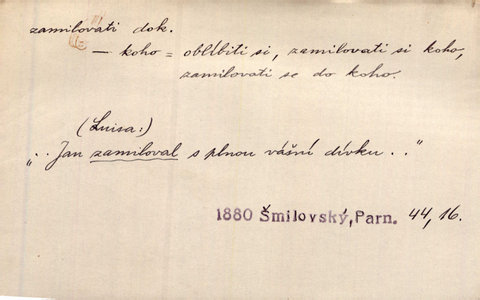 zamilovati dok.
— koho = oblíbiti si, zamilovati si koho,
zamilovati se do koho.
(Luisa:)
„.. Jan zamiloval s plnou vášní dívku .."
1880 Šmilovský, Parn. 44, 16.